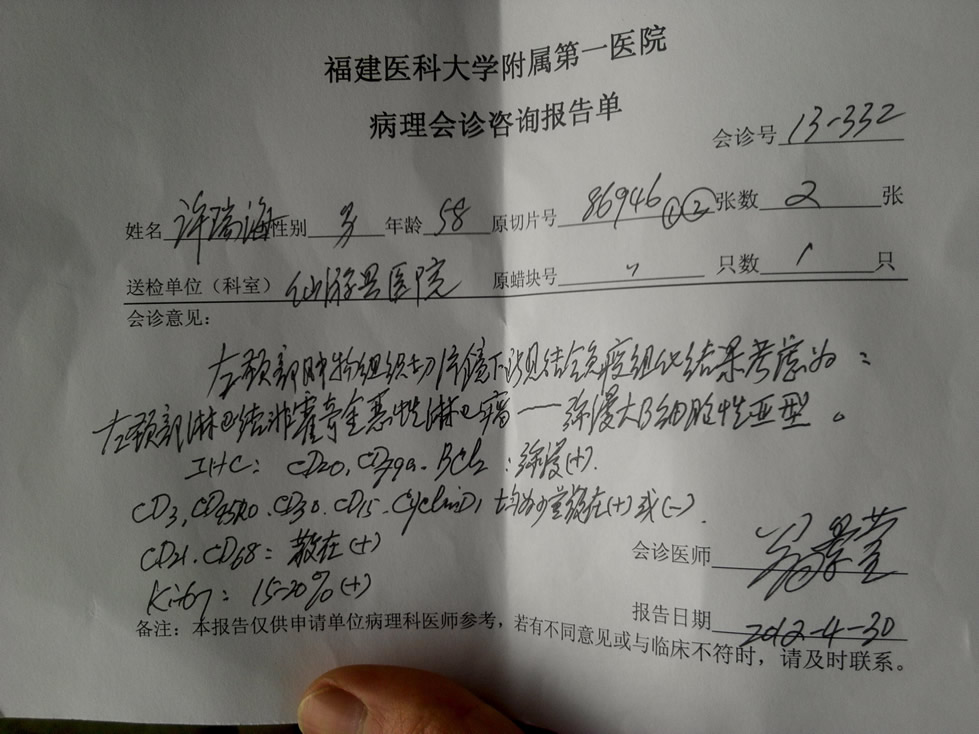 福建医科大学附属第一医院
病理会诊咨询报告单
会诊号 13-332
姓名 许瑞海 性别 男 年龄 58 原切片号 86946①② 张数 2 张
送检单位（科室） 仙游县医院 原蜡块号 〃 只数 1 只
会诊意见：
左颈部肿物组织切片镜下所见结合免疫组化结果考虑为：
左颈部淋巴结非霍奇金恶性淋巴瘤——弥漫大B细胞性亚型。
IHC: CD20, CD79a. BCl2: 弥漫(+).
CD3, CD45R0. CD30. CD15. CyclinD1 均为少量散在(+)或(-).
CD21. CD68: 散在(+)
Ki-67: 15-20%(+)
会诊医师
报告日期 2012-4-30
备注：本报告仅供申请单位病理科医师参考，若有不同意见或与临床不符时，请及时联系。